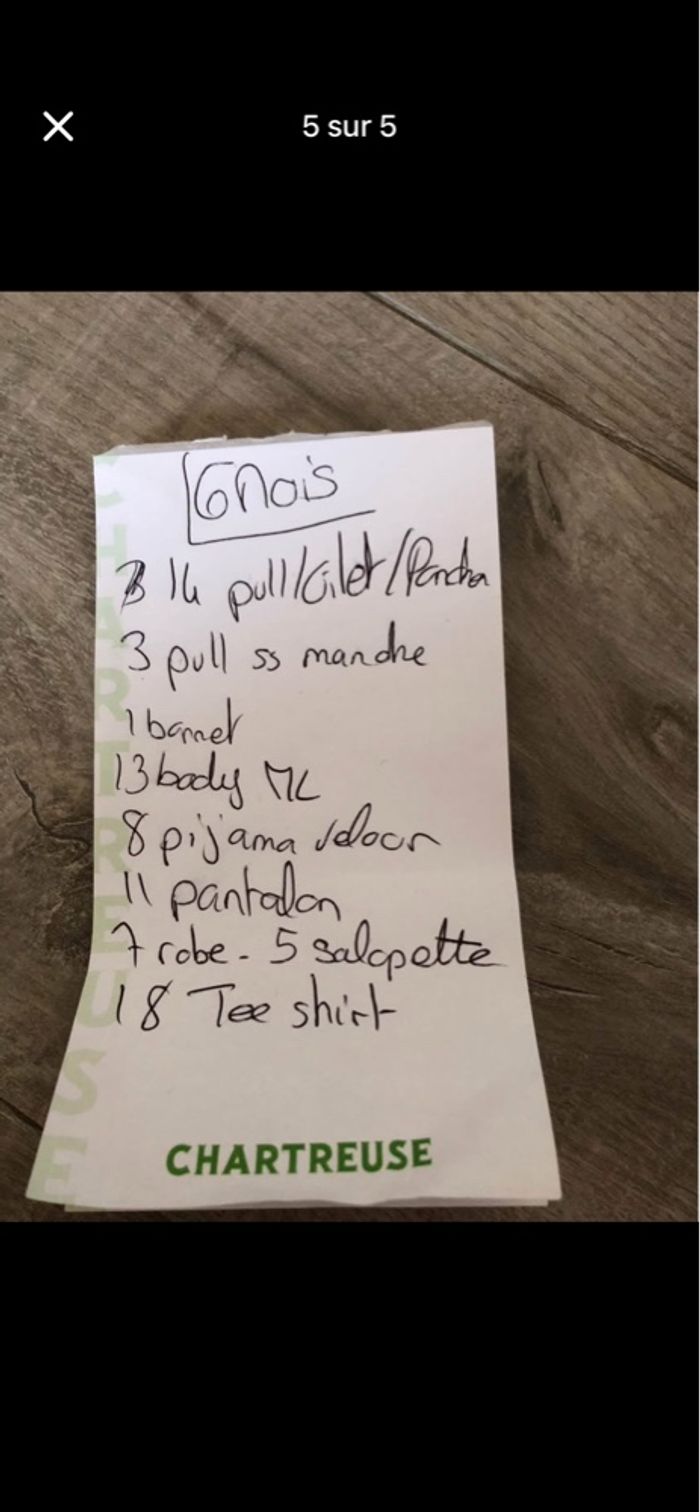 5 sur 5
6 Mois
14 pull/Gilet/Poncho
3 pull ss manche
1 bonnet
13 body ML
8 pijama velour
11 pantalon
7 robe - 5 salopette
18 Tee shirt
CHARTREUSE
CHARTREUSE